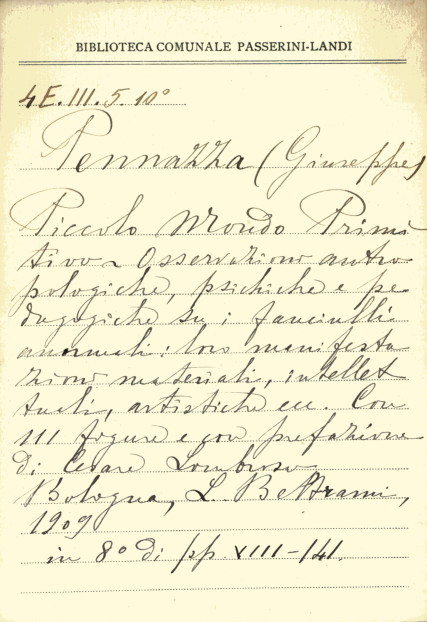 BIBLIOTECA COMUNALE PASSERINI-LANDI
4E.III.5.10°
Pennazza (Giuseppe)
Piccolo Mondo Primi
tivo ~ Osservazioni antro
pologiche, psichiche e pe
dagogiche su i fanciulli
anormali: loro manifesta
zioni materiali, intellet
tuali, artistiche ecc. Con
111 figure e con prefazione
di Cesare Lombroso
Bologna, L. Beltrami,
1909
in 8° di pp. XIII-141.